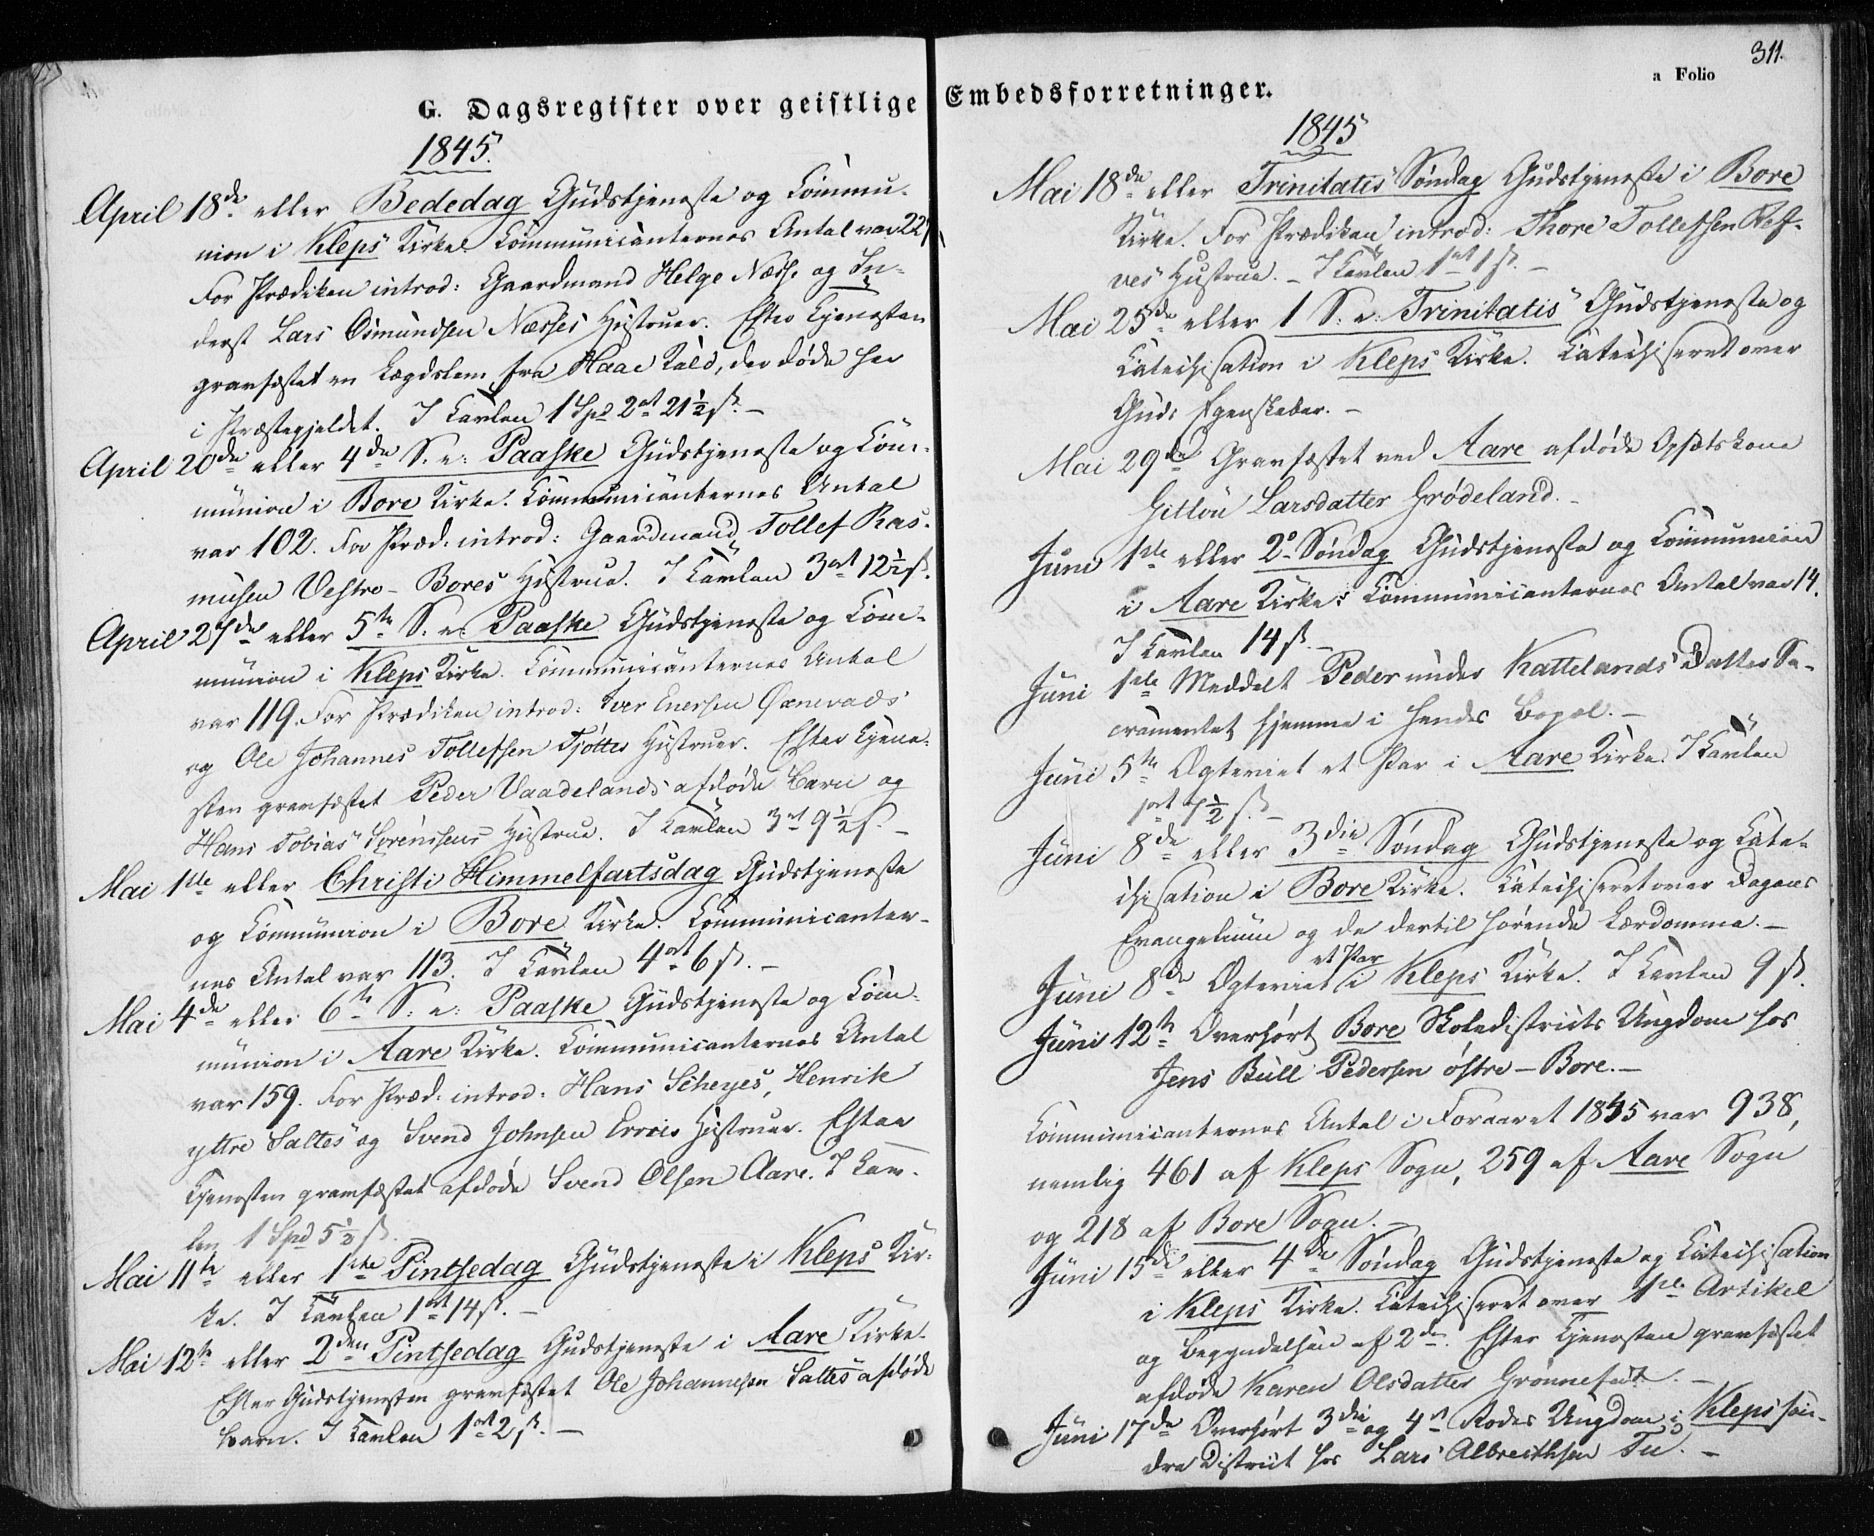 G. Dagsregister over geistlige
1845.
April 18de eller Bededag Gudstjeneste og Commu-
nion i Kleps Kirke. Communicanternes Antal var 221
For Prædiken introd: Gaardmand Helge Næsse og In-
derst Lars Osmundsen Næsses Hustruer. Efter Tjenesten
gravfæstet en Lægdslem fra Haae Kald, der døde her
i Præstegjeldet. I Tavlen 1 Spd 2 ort 21½ ß. –
April 20de eller 4de S. e: Paaske Gudstjeneste og Com-
munion i Bore Kirke. Communicanternes Antal
var 102. For Præd: introd: Gaardmand Tollef Ras-
musen Vestre-Bores Hustrue. I Tavlen 3 ort 12½ ß.
April 27de eller 5te S. e: Paaske Gudstjeneste og Com-
munion i Kleps Kirke. Communicanternes Antal
var 119. For Prædiken introd: Iver Enersen Øxnevads
og Ole Johannes Tollefsen Tjøttes Hustruer. Efter Tjene-
sten gravfæstet Peder Vaadelands afdøde Barn og
Hans Tobias Sørenssens Hustrue. I Tavlen 3 ort 9½ ß. –
Mai 1ste eller Christi Himmelfartsdag Gudstjeneste
og Communion i Bore Kirke. Communicanter-
nes Antal var 113. I Tavlen 4 ort 6 ß. –
Mai 4de eller 6te S: e: Paaske Gudstjeneste og Com-
munion i Aare Kirke. Communicanternes Antal
var 159. For Præd: introd: Hans Scheyes, Henrik
yttre Saltes og Svend Johnsen Hustruer. Efter
Tjenesten gravfæstet afdøde Svend Olsen Aare. I Tav-
len 1 Spd 5½ ß.
Mai 11te eller 1ste Pintsedag Gudstjeneste i Kleps Kir-
ke. I Tavlen 1 ort 14 ß. –
Mai 12te eller 2den Pintsedag Gudstjeneste i Aare Kirke.
Efter Gudstjenesten gravfæstet Ole Johannesen Saltes afdøde
Barn. I Tavlen 1 ort 2 ß. –
Embedsforretninger.
a Folio 311.
1845
Mai 18de eller Trinitatis Søndag Gudstjeneste i Bore
Kirke. For Prædiken introd: Thore Tollefsen Ref-
ves Hustrue. – I Tavlen 1 ort 1 ß. –
Mai 25de eller 1 S: e: Trinitatis Gudstjeneste og
Catechisation i Kleps Kirke. Catechiseret over
Guds Egenskaber. –
Mai 29de Gravfæstet ved Aare afdøde Opsætskone
Gitlou Larsdatter Grødeland. –
Juni 1ste eller 2d Søndag Gudstjeneste og Communion
i Aare Kirke: Communicanternes Antal var 14.
I Tavlen 14 ß. –
Juni 1ste Meddelt Peder under Kattelands Datter Sa-
cramentet hjemme i hendes Bopæl. –
Juni 5te Ægteviet et Par i Aare Kirke. I Tavlen
1 ort 7½ ß. –
Juni 8de eller 3die Søndag Gudstjeneste og Cate-
chisation i Bore Kirke. Catechiseret over Dagens
Evangelium og de dertil hørende Lærdomme. –
Juni 8de Ægteviet et Par i Kleps Kirke. I Tavlen 9 ß.
Juni 12te Overhørt Bore Skoledistricts Ungdom hos
Jens Bull Pedersen østre-Bore. –
Communicanternes Antal i Foraaret 1845 var 938,
nemlig 461 af Kleps Sogn, 259 af Aare Sogn
og 218 af Bore Sogn. –
Juni 15de eller 4de Søndag Gudstjeneste og Catechisation
i Kleps Kirke. Catechiseret over 1ste Artikel
og Begyndelsen af 2den. Efter Tjenesten gravfæstet
afdøde Karen Olsdatter Grønneset. –
Juni 17de Overhørt 3die og 4de Rodes Ungdom i Kleps søn-
dre District hos Lars Albrecthsen Tu. –